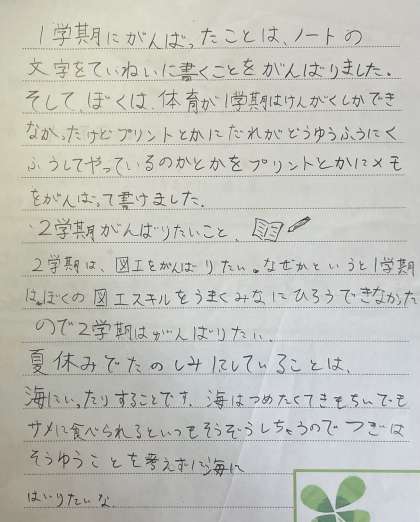 1学期にがんばったことは、ノートの
文字をていねいに書くことをがんばりました。
そして、ぼくは、体育が1学期はけんがくしかでき
なかったけどプリントとかにだれがどうゆうふうにく
ふうしてやっているのかとかをプリントとかにメモ
をがんばって書けました。
2学期がんばりたいこと、
2学期は、図工をがんばりたい。なぜかというと1学期
は。ぼくの図工スキルをうまくみなにひろうできなかった
ので2学期はがんばりたい。
夏休みでたのしみにしていることは、
海にいったりすることです。海はつめたくてきもちいでも
サメに食べられるといつもそうぞうしちゃうのでつぎは
そうゆうことを考えずに海に
はいりたいな